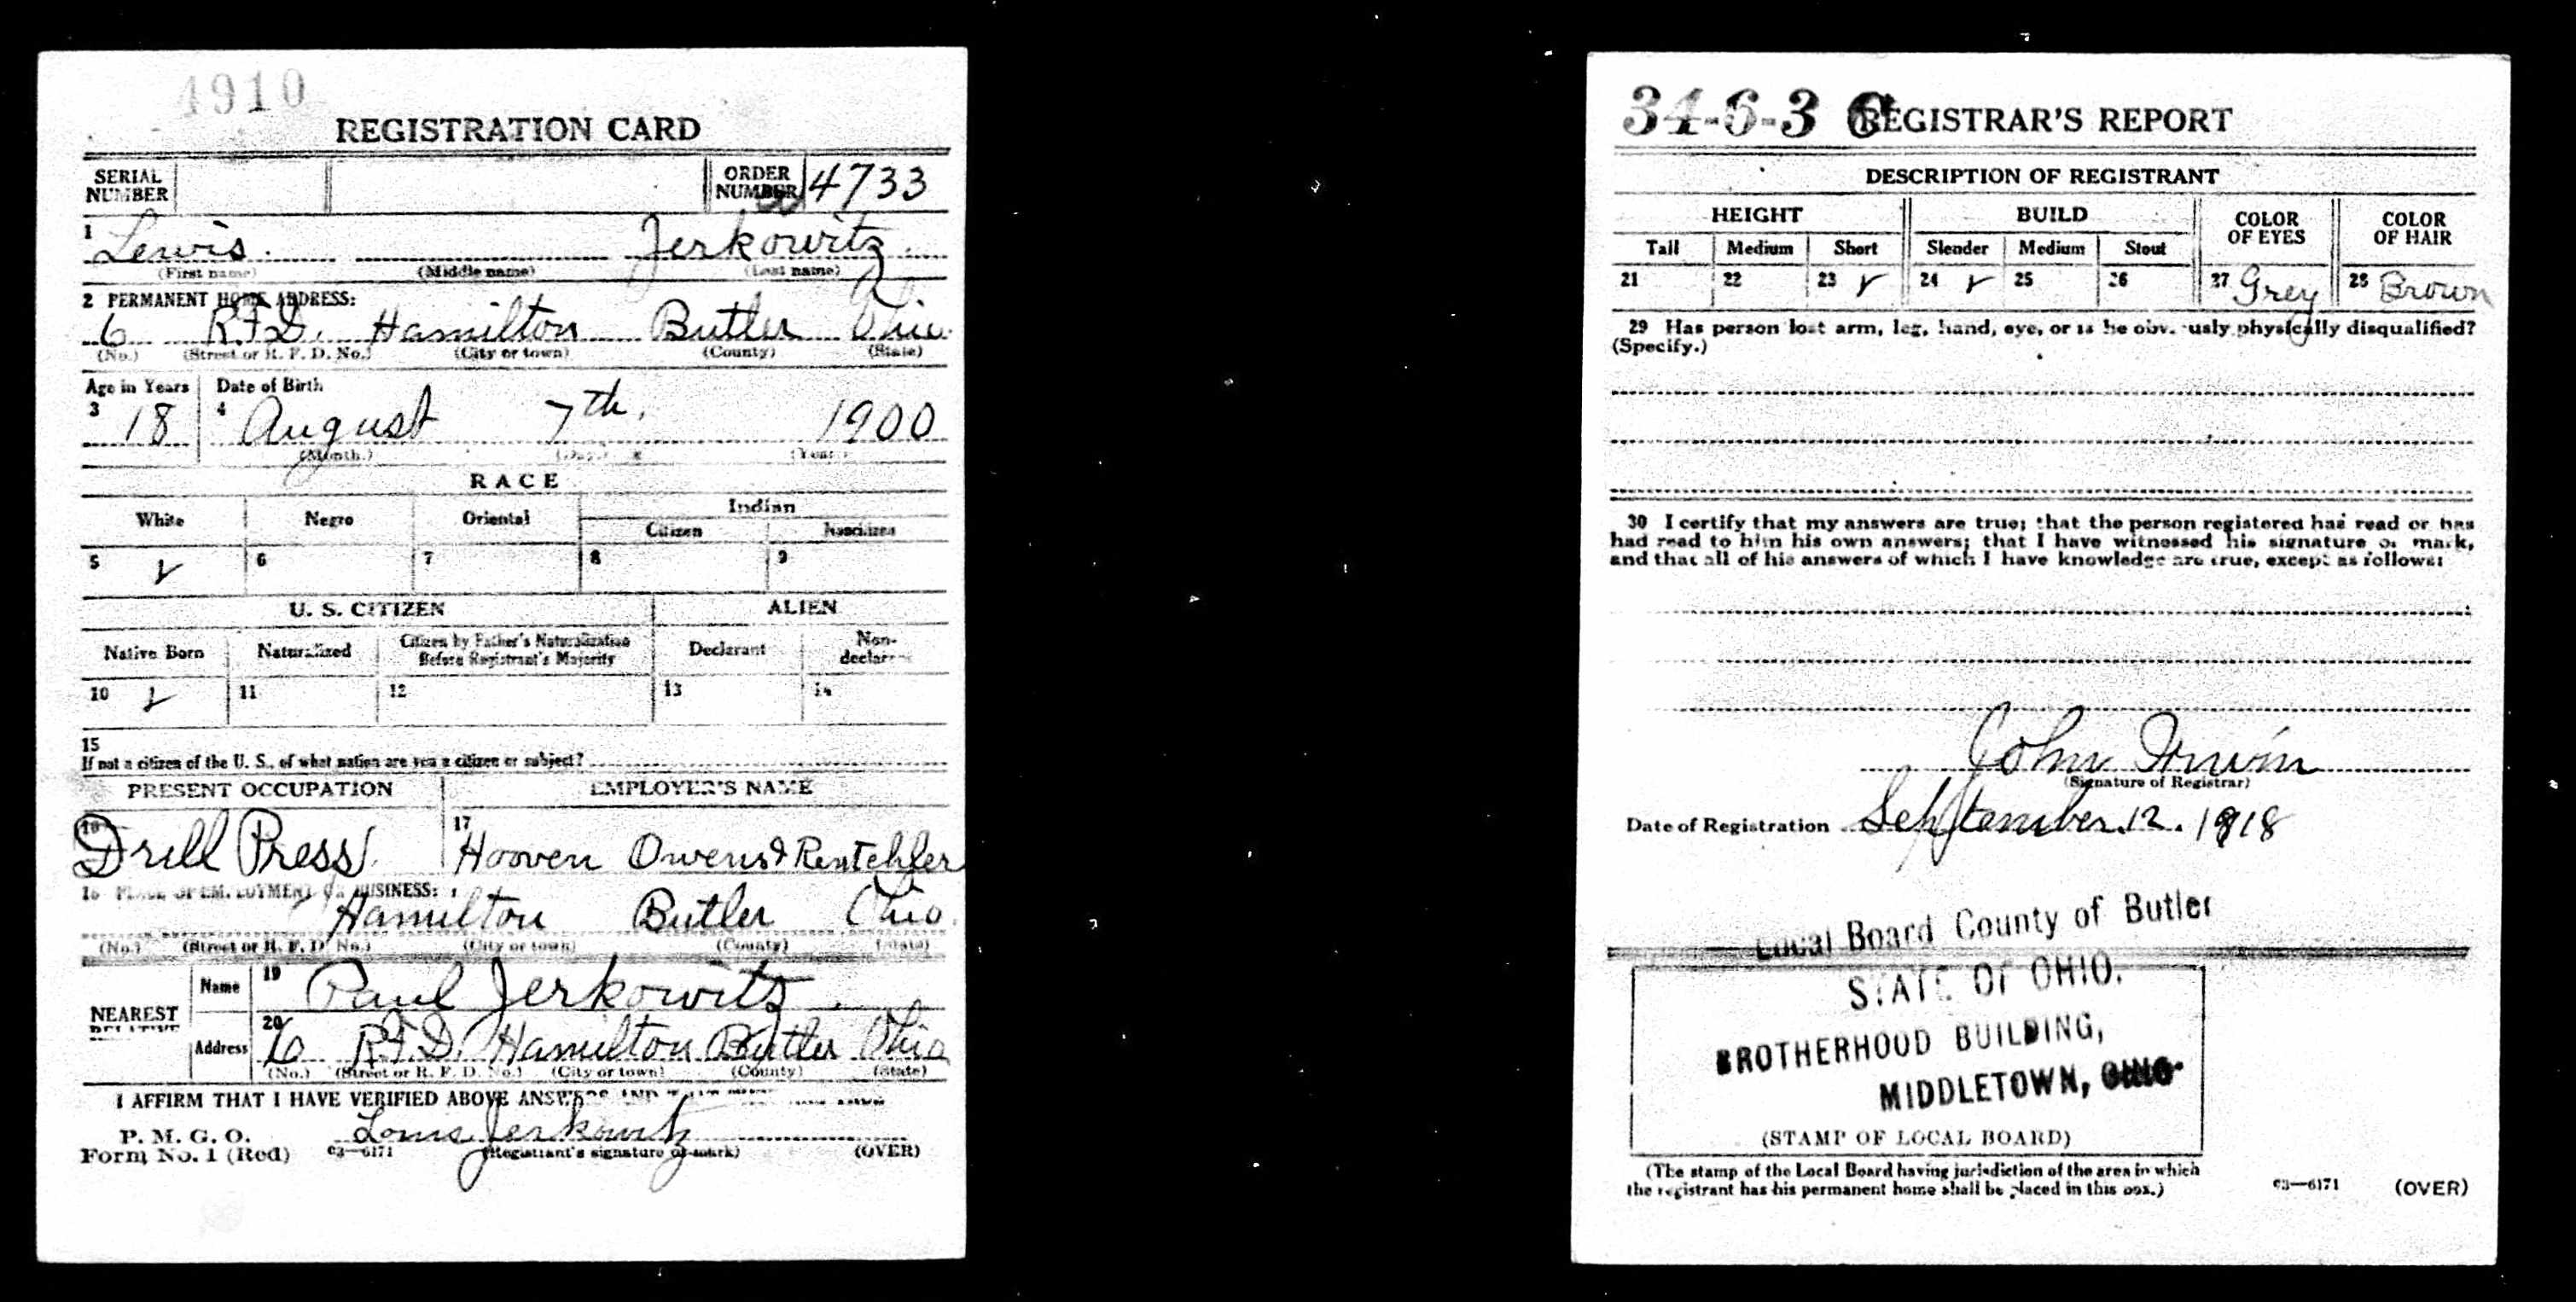 4910
REGISTRATION CARD
SERIAL NUMBER ORDER NUMBER 4733
1 Lewis. Jerkowitz.
(First name) (Middle name) (Last name)
2 PERMANENT HOME ADDRESS:
6 R.F.D. Hamilton Butler Ohio.
(No.) (Street or R. F. D. No.) (City or town) (County) (State)
Age in Years Date of Birth
3 18 4 August 7th, 1900
(Month.) (Day.) (Year.)
RACE
White Negro Oriental Indian
Citizen Noncitizen
5 ✓ 6 7 8 9
U. S. CITIZEN ALIEN
Native Born Naturalized Citizen by Father's Naturalization Before Registrant's Majority Declarant Non-declarant
10 ✓ 11 12 13 14
15
If not a citizen of the U. S., of what nation are you a citizen or subject?
PRESENT OCCUPATION EMPLOYER'S NAME
16 Drill Press 17 Hooven Owens & Rentchler
18 PLACE OF EMPLOYMENT OR BUSINESS:
Hamilton Butler Ohio.
(No.) (Street or R. F. D. No.) (City or town) (County) (State)
NEAREST RELATIVE
Name 19 Paul Jerkowitz.
Address 20 6 R.F.D. Hamilton Butler Ohio
(No.) (Street or R. F. D. No.) (City or town) (County) (State)
I AFFIRM THAT I HAVE VERIFIED ABOVE ANSWERS AND THAT
P. M. G. O.
Form No. 1 (Red) 03—6171 Louis Jerkowitz
(Registrant's signature or mark) (OVER)
34-6-3 C
REGISTRAR'S REPORT
DESCRIPTION OF REGISTRANT
HEIGHT BUILD COLOR OF EYES COLOR OF HAIR
Tall Medium Short Slender Medium Stout
21 22 23 ✓ 24 ✓ 25 26 27 Grey 28 Brown
29 Has person lost arm, leg, hand, eye, or is he obviously physically disqualified?
(Specify.)
30 I certify that my answers are true; that the person registered has read or has
had read to him his own answers; that I have witnessed his signature or mark,
and that all of his answers of which I have knowledge are true, except as follows:
John Irwin
(Signature of Registrar)
Date of Registration September. 12. 1918
Local Board County of Butler
STATE OF OHIO.
BROTHERHOOD BUILDING,
MIDDLETOWN, OHIO.
(STAMP OF LOCAL BOARD)
(The stamp of the Local Board having jurisdiction of the area in which
the registrant has his permanent home shall be placed in this box.)
03—6171 (OVER)